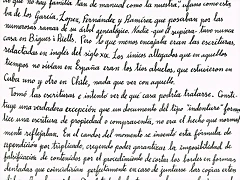 que no hay familia tan de manual como la nuestra", ufano como esta-
ba de los García-López, Fernández y Ramírez que posaban por las
numerosas ramas de su árbol genealógico. Nadie -que él supiera- tuvo nunca
casa en Biguei i Riells. Por lo que menos encajaba eran las escrituras,
redactadas en inglés del siglo XIX. Los únicos allegados que en aquellos
tiempos no vivían en España eran los tíos abuelos, que estuvieron en
Cuba uno y otro en Chile, nada que ver con aquello.
Tomó las escrituras e intentó ver de qué casa podría tratarse. Consti-
tuye una verdadera excepción que un documento del tipo "indenture" forma-
lice una escritura de propiedad o compraventa, no era el hecho que normal-
mente reflejaban. En el candor del momento se inventó esta fórmula de
apendición por triplicado, creyendo poder garantizar la imposibilidad de
falsificación de contenidos por el procedimiento de cortar los bordes en formas
dentadas que coincidirían perfectamente en caso de juntarse las copias exten-